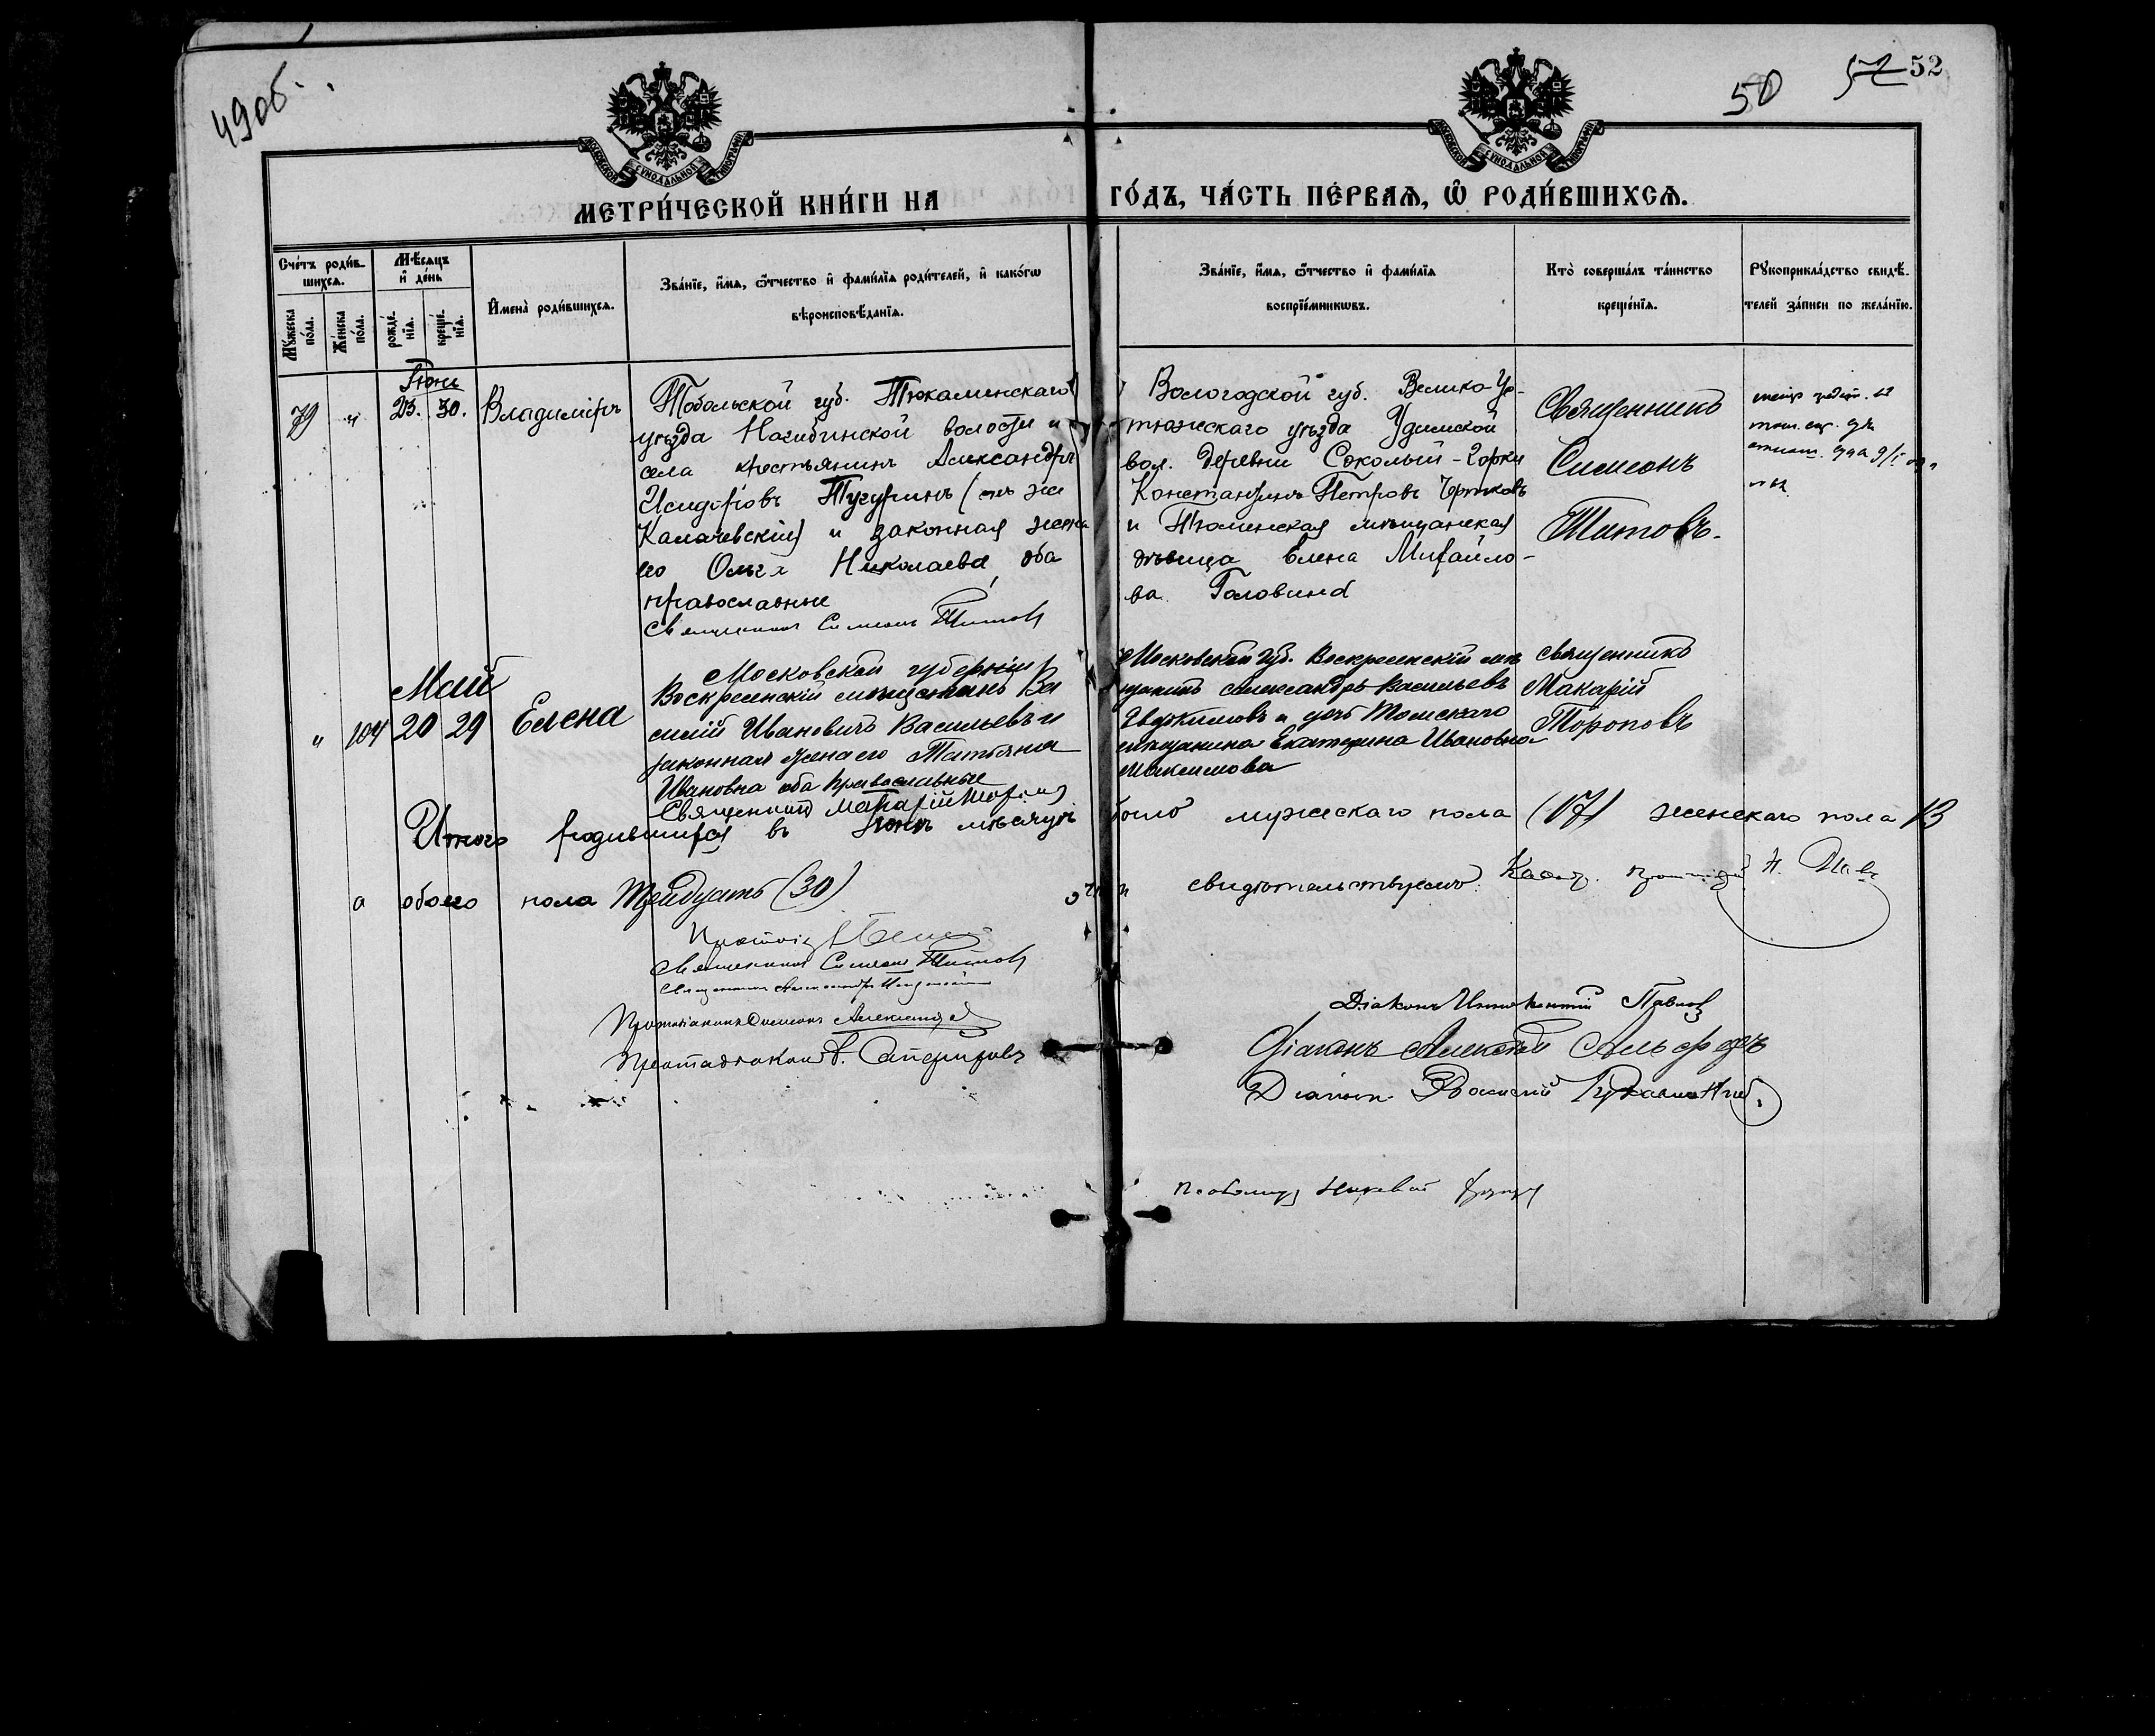 49об.
50
52
52
МОСКОВСКОЙ СѴНОДАЛЬНОЙ ТИПОГРАФІИ
МОСКОВСКОЙ СѴНОДАЛЬНОЙ ТИПОГРАФІИ
МЕТРИ́ЧЕСКОЙ КНИ́ГИ НА ГО́ДЪ, ЧА́СТЬ ПЕ́РВАѦ, Ѡ҆ РОДИ́ВШИХСѦ.
Сче́тъ роди́в-
шихсѧ.
Мꙋ́жеска по́ла.
Же́нска по́ла.
Мѣ́сѧцъ и҆ де́нь
рожде́-нїѧ.
креще́-нїѧ.
И҆мена̀ роди́вшихсѧ.
Зва́нїе, и҆́мѧ, ѻ҆́тчество и҆ фами́лїѧ роди́телей, и҆ како́гѡ
вѣроисповѣ́данїѧ.
Зва́нїе, и҆́мѧ, ѻ҆́тчество и҆ фами́лїѧ
воспрїе́мникѡвъ.
Кто̀ соверша́лъ та́инство
креще́нїѧ.
Рꙋкоприкла́дство свидѣ́-
телей за́писи по жела́нїю.
Іюнь
79 " 23. 30. Владиміръ
Тобольской губ. Тюкалинскаго
уѣзда Нагибинской волости и
села крестьянинъ Александръ
Исидоровъ Тугуринъ (онъ же
Калачевскій) и законная жена
его Ольга Николаева, оба
православные
Священникъ Симеонъ Титовъ
Вологодской губ. Велико-Ус-
тюжскаго уѣзда Удимской
вол. деревни Соколый-Горки
Константинъ Петровъ Чертковъ
и Тюменская мѣщанская
дѣвица Елена Михайло-
ва Головина
Священникъ
Симеонъ
Титовъ.
Май
" 104 20 29 Елена
Московской губерніи
Воскресенскій мѣщанинъ Ва
силій Ивановичъ Васильевъ и
законная жена его Татьяна
Ивановна оба православные
Священникъ Макарій Тороповъ
Московской губ. Воскресенскій мѣ
щанинъ Александръ Васильевъ
Евдокимовъ и дочь Томскаго
мѣщанина Екатерина Ивановна
Максимова
Священникъ
Макарій
Тороповъ
Итого родившихся въ Іюнѣ мѣсяцѣ было мужескаго пола (17) женскаго пола 13
а обоего пола Тридцать (30)
свидѣтельствуемъ:
Священникъ Симеонъ Титовъ
Діаконъ Иннокентій Павловъ
Діаконъ Алексѣй
Діаконъ Василій